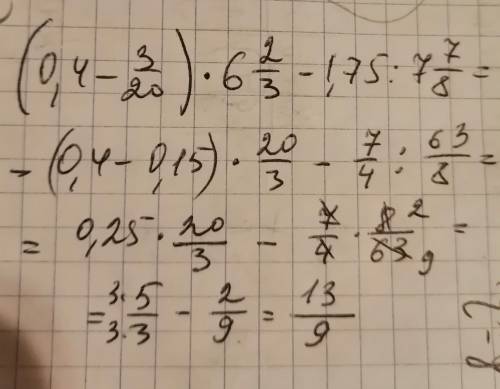 (0,4 - 3/20) · 6 2/3 - 1,75 : 7 7/8 =
- (0,4 - 0,15) · 20/3 - 7/4 : 63/8 =
= 0,25 · 20/3 - 7/4 · 8 2/63 9 =
= 3· 5/3· 3 - 2/9 = 13/9